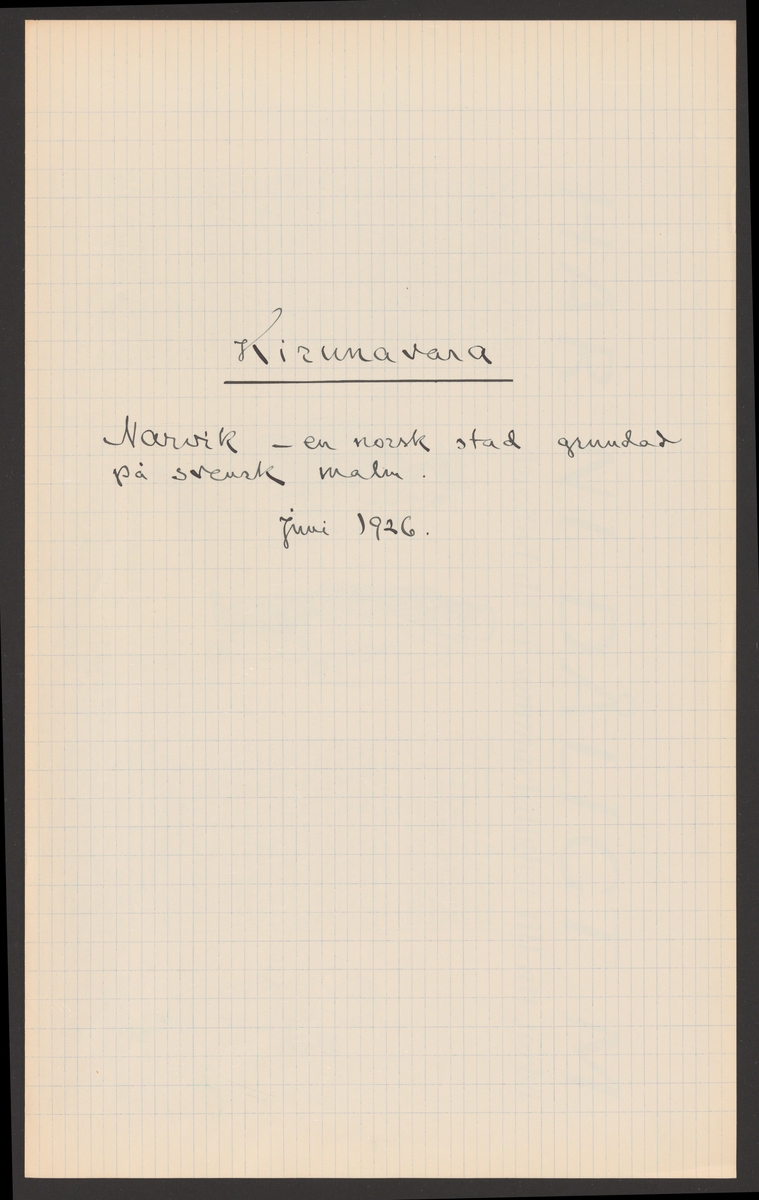 Kirunavara
Narvik – en norsk stad grundad
på svensk malm.
Juni 1926.